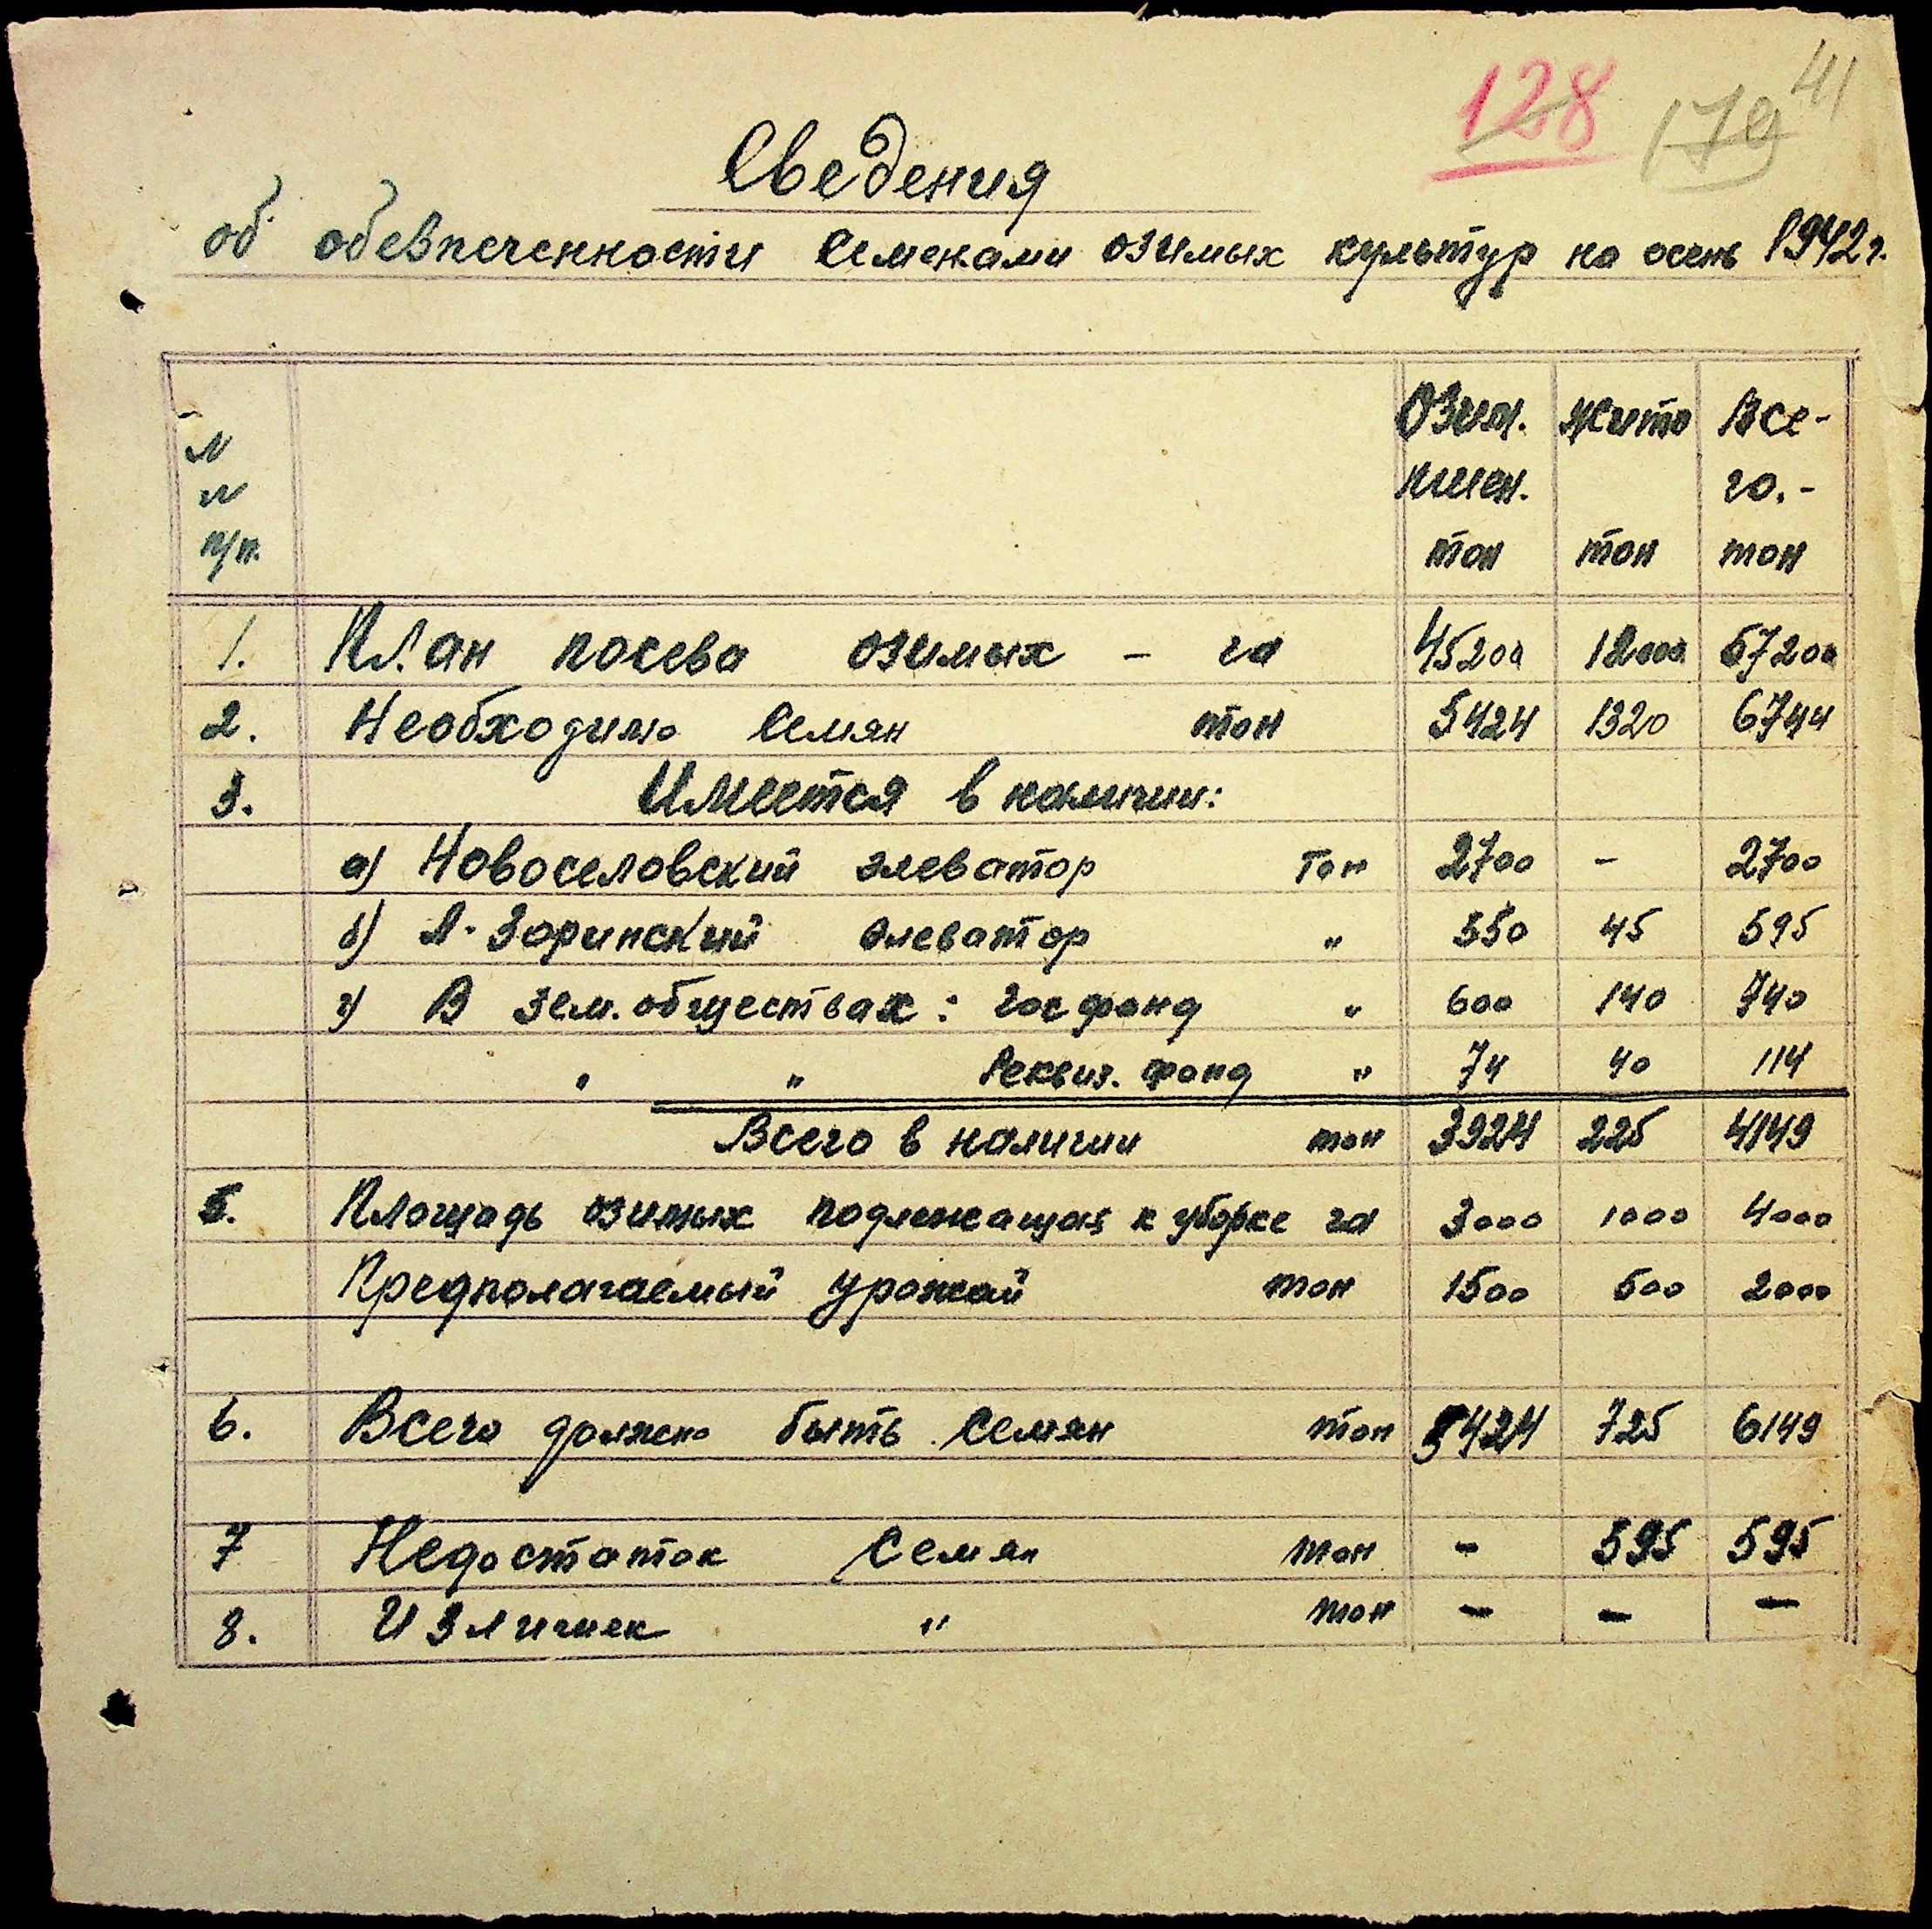 128 179 41
Сведения
об обевпеченности Семенами озимых культур на осень 1942 г.
N N п/п. Озим. пшен. тон Жито тон Все-го.- тон
1. План посева озимых - га 45200 12000 57200
2. Необходимо Семян тон 5424 1320 6744
3. Имеется в наличии:
а) Новоселовский элеватор Тон 2700 - 2700
б) А. Зорипский элеватор " 550 45 595
г) В зем. обществах: гос фонд " 600 140 740
" " Реквиз. фонд " 74 40 114
Всего в наличии тон 3924 225 4149
5. Площадь озимых подлежащая к уборке га 3000 1000 4000
Предполагаемый урожай тон 1500 500 2000
6. Всего должно быть Семян тон 5424 725 6149
7 Недостаток Семян тон - 595 595
8. Излишек " тон - - -